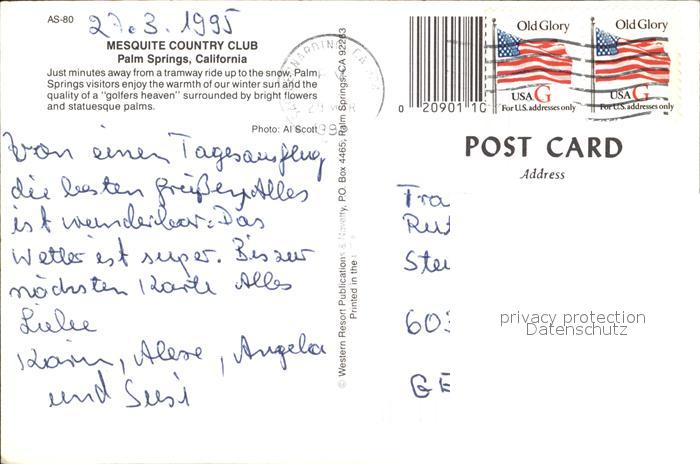 AS-80
27.3.1995
MESQUITE COUNTRY CLUB
Palm Springs, California
Just minutes away from a tramway ride up to the snow, Palm
Springs visitors enjoy the warmth of our winter sun and the
quality of a "golfers heaven" surrounded by bright flowers
and statuesque palms.
Photo: Al Scott
Von einem Tagesausflug
die besten Grüße. Alles
ist wunderbar. Das
Wetter ist super. Bis zur
nächsten Karte Alles
Liebe
Karin, Alexe, Angela
und Susi
© Western Resort Publications & Novelty, P.O. Box 4465, Palm Springs, CA 92263
Printed in the
0 20901 10
Old Glory
USA G
For U.S. addresses only
Old Glory
USA G
For U.S. addresses only
POST CARD
Address
Fra
Rut
Ste
603
GE
privacy protection
Datenschutz